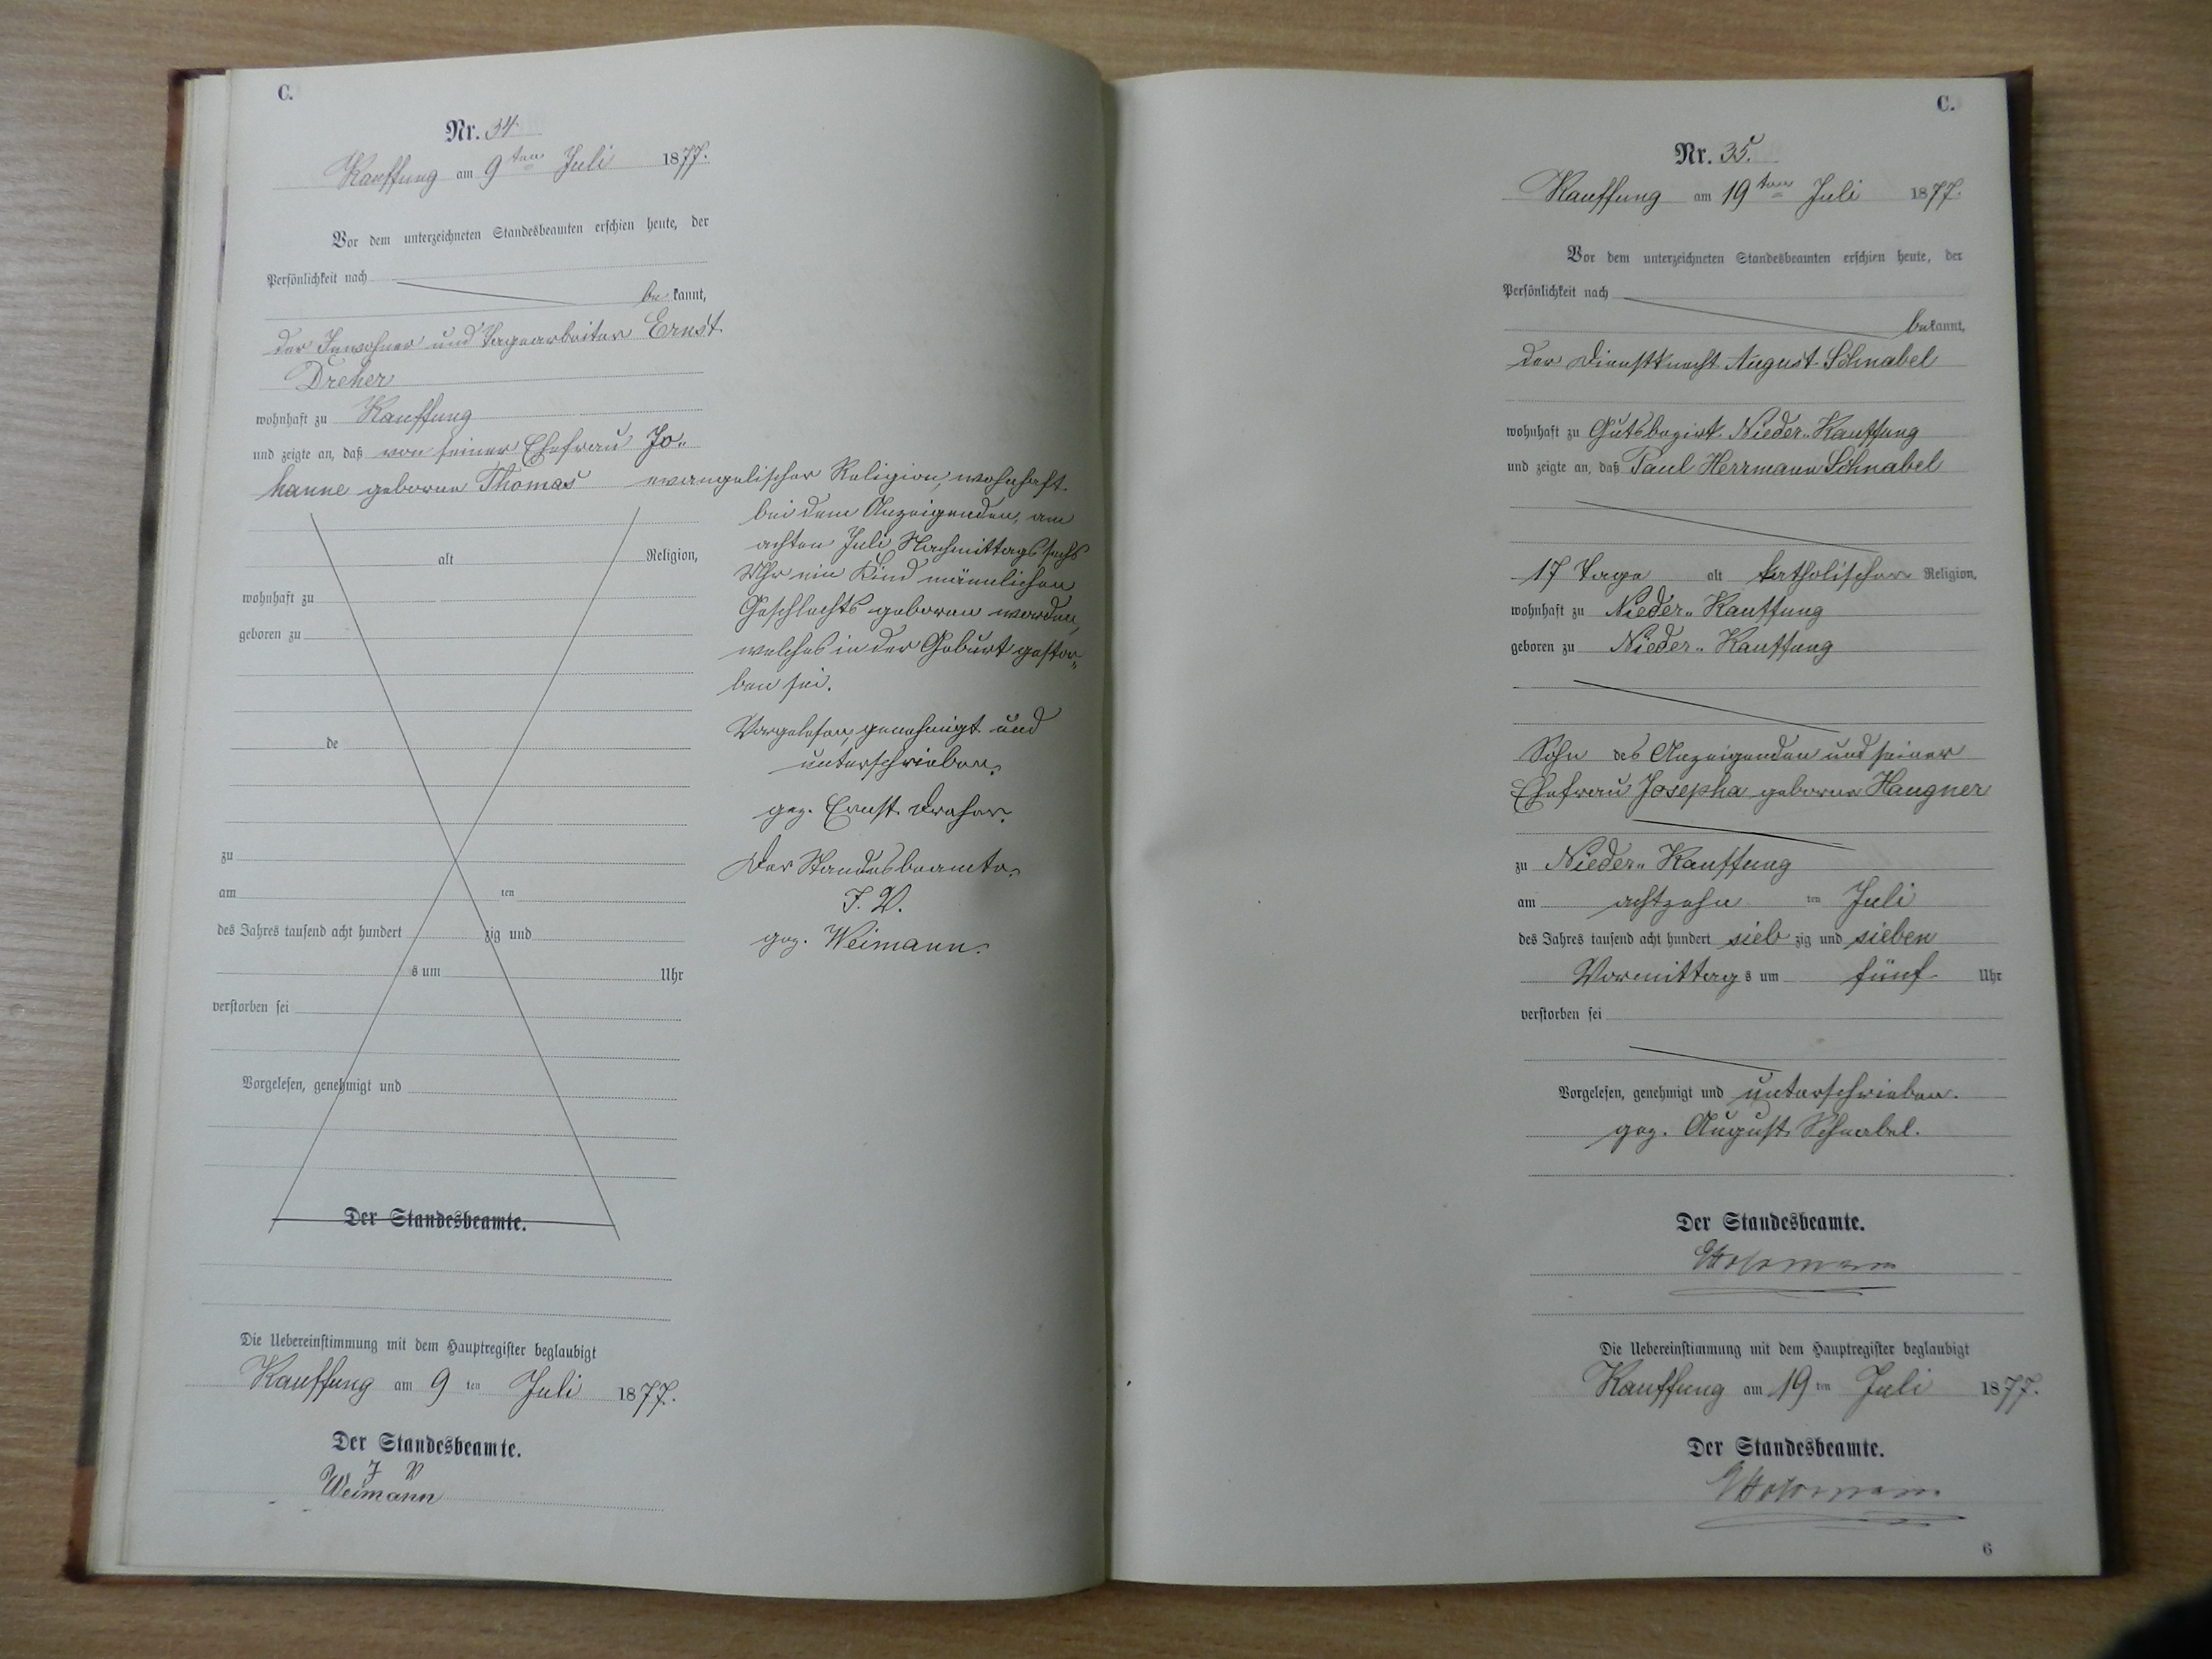 C.
Nr. 34
Kauffung am 9ten Juli 1877.
Vor dem unterzeichneten Standesbeamten erschien heute, der
Persönlichkeit nach
be kannt,
der Inwohner und Tagearbeiter Ernst
Dreher
wohnhaft zu Kauffung
und zeigte an, daß von seiner Ehefrau Jo-
hanne geborne Thomas evangelischer Religion, wohnhaft
bei dem Anzeigenden, am
achten Juli Nachmittags sechs
Uhr ein Kind männlichen
Geschlechts geboren worden,
welches in der Geburt gestor-
ben sei.
Vorgelesen, genehmigt und
unterschrieben.
gez. Ernst Dreher.
Der Standesbeamte.
J. V.
gez. Weimann.
alt Religion,
wohnhaft zu
geboren zu
de
zu
am ten
des Jahres tausend acht hundert zig und
s um Uhr
verstorben sei
Vorgelesen, genehmigt und
Der Standesbeamte.
Die Uebereinstimmung mit dem Hauptregister beglaubigt
Kauffung am 9 ten Juli 1877.
Der Standesbeamte.
J V
Weimann
C.
Nr. 35.
Kauffung am 19ten Juli 1877.
Vor dem unterzeichneten Standesbeamten erschien heute, der
Persönlichkeit nach
bekannt,
der Dienstknecht August Schnabel
wohnhaft zu Gutsbezirk Nieder-Kauffung
und zeigte an, daß Paul Herrmann Schnabel
17 Tage alt katholischer Religion,
wohnhaft zu Nieder-Kauffung
geboren zu Nieder-Kauffung
Sohn des Anzeigenden und seiner
Ehefrau Josepha geborne Haugner
zu Nieder-Kauffung
am achtzehn ten Juli
des Jahres tausend acht hundert sieb zig und sieben
Vormittag s um fünf Uhr
verstorben sei
Vorgelesen, genehmigt und unterschrieben.
gez. August Schnabel.
Der Standesbeamte.
Die Uebereinstimmung mit dem Hauptregister beglaubigt
Kauffung am 19 ten Juli 1877.
Der Standesbeamte.
6